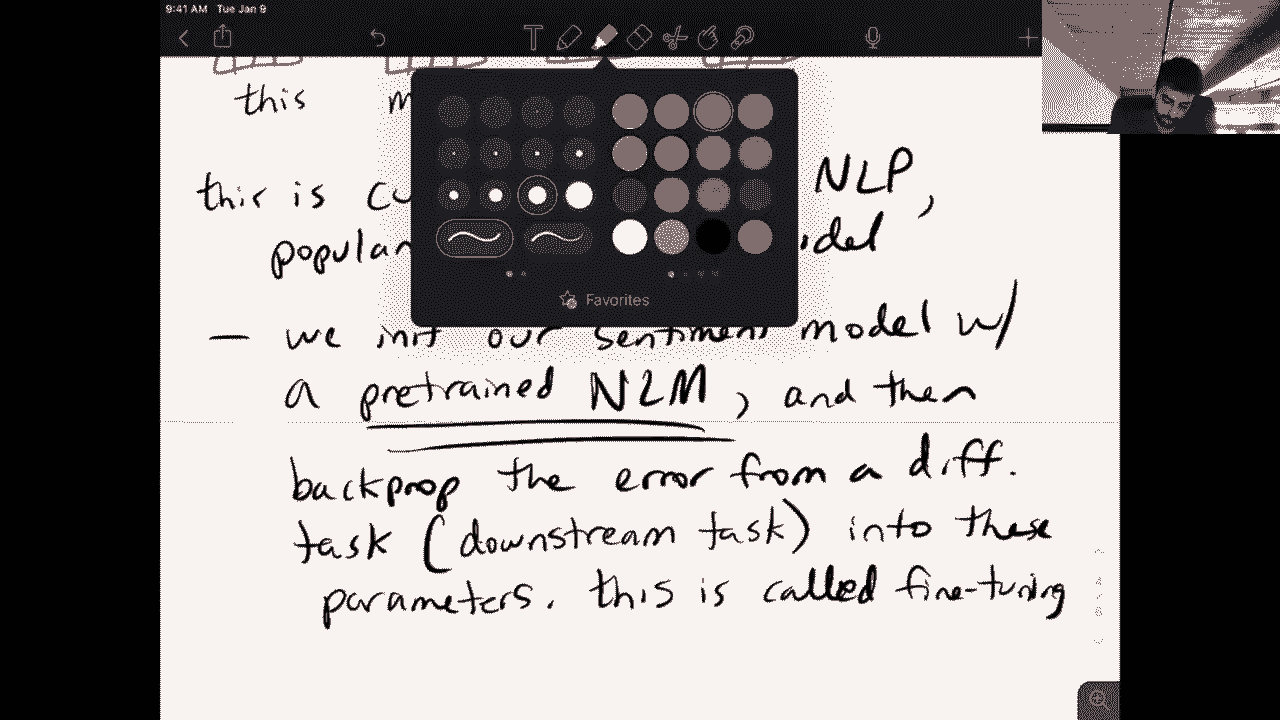 9:41 AM Tue Jan 9
this
Favorites
this is NLP,
popular
we init our sentiment model w/
a pretrained NLM, and then
backprop the error from a diff.
task (downstream task) into these
parameters. this is called fine-tuning